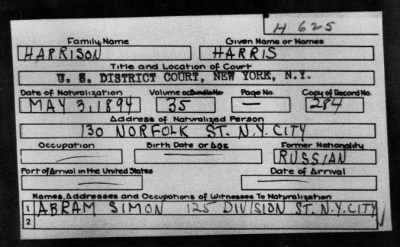 H 625
Family Name Given Name or Names
HARRISON HARRIS
Title and Location of Court
U. S. DISTRICT COURT, NEW YORK, N.Y.
Date of Naturalization Volume or Bundle No. Page No. Copy of Record No.
MAY 3, 1894 35 — 284
Address of Naturalized Person
130 NORFOLK ST. N.Y. CITY
Occupation Birth Date or Age Former Nationality
— — RUSSIAN
Port of Arrival in the United States Date of Arrival
— —
Names, Addresses and Occupations of Witnesses To Naturalization
1 ABRAM SIMON 125 DIVISION ST. N.Y. CITY
2